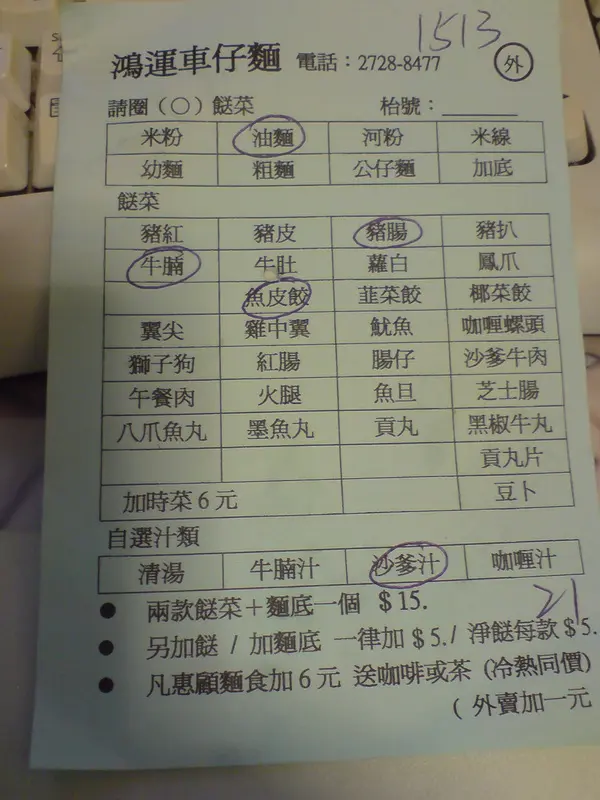 1513
鴻運車仔麵 電話：2728-8477 外
請圈（○）餸菜 枱號：
米粉 油麵 河粉 米線
幼麵 粗麵 公仔麵 加底
餸菜
豬紅 豬皮 豬腸 豬扒
牛腩 牛肚 蘿白 鳳爪
魚皮餃 韮菜餃 椰菜餃
翼尖 雞中翼 魷魚 咖喱螺頭
獅子狗 紅腸 腸仔 沙爹牛肉
午餐肉 火腿 魚旦 芝士腸
八爪魚丸 墨魚丸 貢丸 黑椒牛丸
貢丸片
加時菜6元 豆卜
自選汁類
清湯 牛腩汁 沙爹汁 咖喱汁
● 兩款餸菜＋麵底一個 $15. 21
● 另加餸 / 加麵底 一律加$5./ 淨餸每款$5.
● 凡惠顧麵食加6元 送咖啡或茶 (冷熱同價)
( 外賣加一元